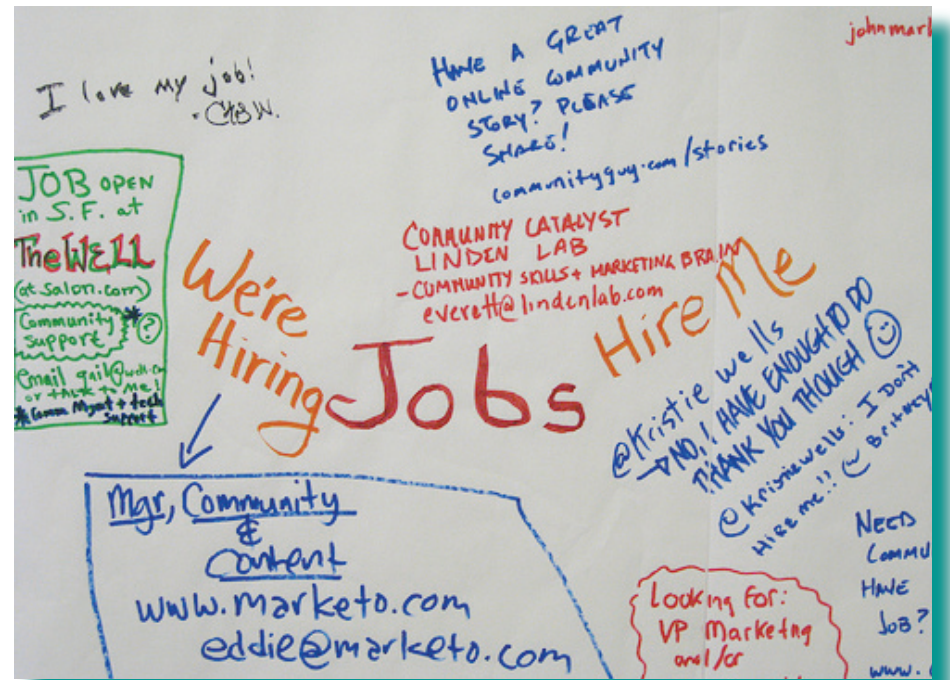 I love my job!
HAVE A GREAT
ONLINE COMMUNITY
STORY? PLEASE
SHARE!
communityguy.com/stories
johnmark
JOB OPEN
in S.F. at
The WELL
(at salon.com)
Community
support
?
email gail@well.com
or talk to me!
*Comm Mgmt + tech
support
We're
Hiring
COMMUNITY CATALYST
LINDEN LAB
- COMMUNITY SKILLS + MARKETING BRAIN
everett@lindenlab.com
Jobs
Hire Me
@Kristie wells
→ NO, I HAVE ENOUGH TO DO
THANK YOU THOUGH
@Kristiewells: I Don't
Hire me!! Britney
Mgr, Community
&
Content
www.marketo.com
eddie@marketo.com
Looking for:
VP Marketing
and/or
NEED
COMMU
HAVE
JOB?
www.